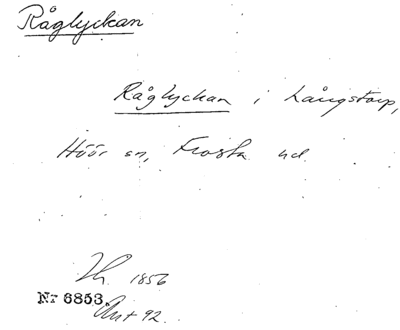 Råglyckan
Råglyckan i Långstorp,
Höör sn, Frosta hd.
Lh. 1856
Nr 6853.
Ant 92.